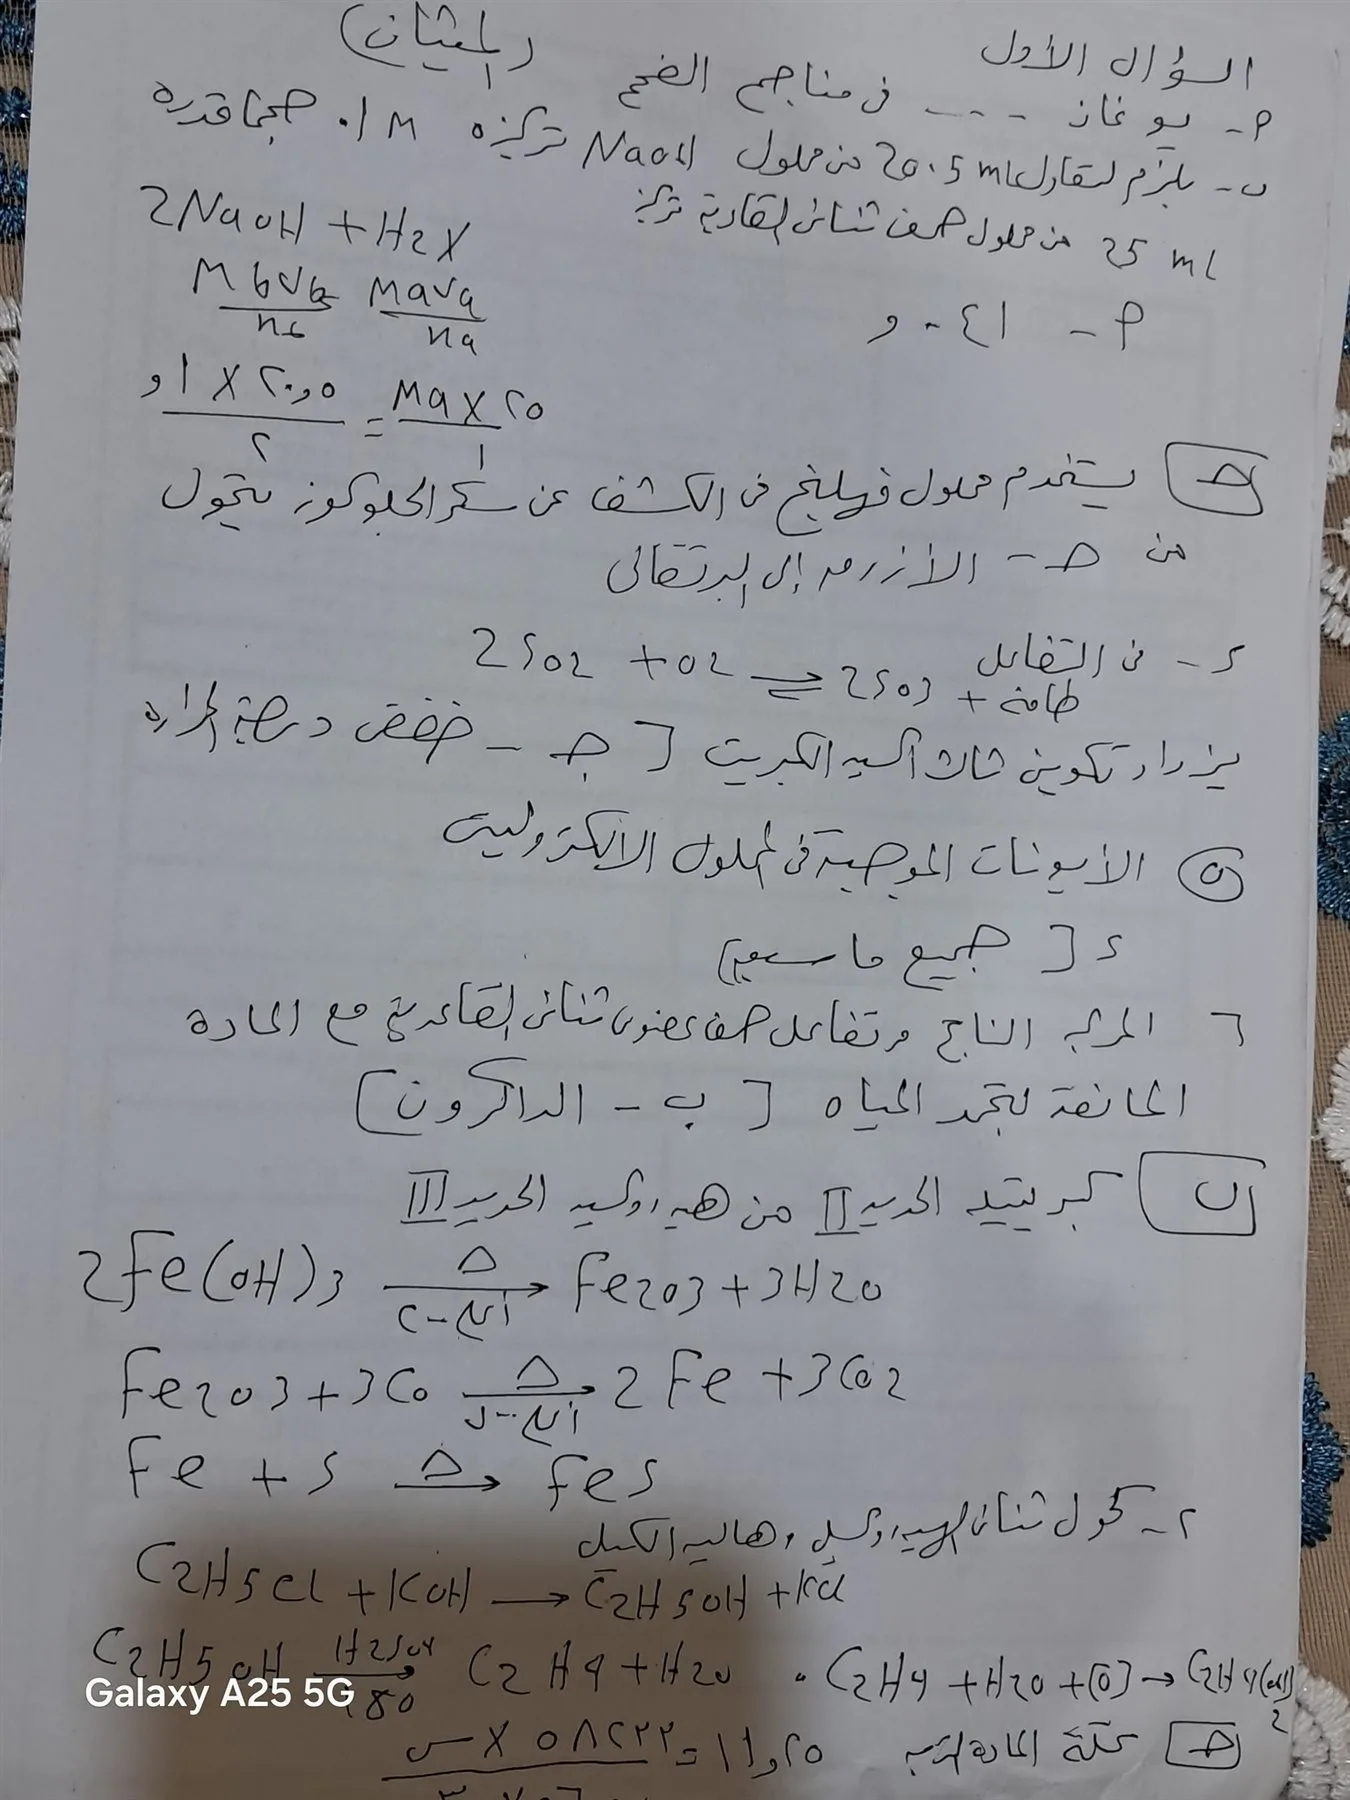 السؤال الأول
(الميثان)
٢- يوجد غاز ---- فى مناجم الفحم
ب- يلزم لتعادل 20.5 mL من محلول NaOH تركيزه 0.1 M حجما قدره
25 ml من محلول حمض ثنائى القاعدية تركيز
2NaOH + H2X
MbVb = MaVa
nb na
٢- ٠٤١ و
٢٠,٥ X ١ و = Ma X ٢٥
٢ ١
ج يستخدم محلول فهلنج فى الكشف عن سكر الجلوكوز يتحول
من ج- الأزرق إلى البرتقالى
٤- فى التفاعل 2SO2 + O2 ⇌ 2SO3 + طاقة
يزداد تكوين ثالث أكسيد الكبريت [ ج - خفض درجة الحرارة
٥ الأيونات الموجبة فى المحلول الالكتروليتى
د [ جميع ما سبق ]
٦ المركب الناتج من تفاعل حمض عضوى ثنائى القاعدية مع المادة
المانعة لتجمد المياه [ ب - الداكرون ]
ب كبريتيد الحديد II من هيدروكسيد الحديد III
2Fe(OH)3 Δ → أعلى ٢٠٠ Fe2O3 + 3H2O
Fe2O3 + 3CO Δ → أعلى ٧٠٠ 2Fe + 3CO2
Fe + S Δ → FeS
٢- كحول ثنائى الهيدروكسيل من هاليد الكيل
C2H5Cl + KOH → C2H5OH + KCl
C2H5OH H2SO4 → 180 C2H4 + H2O . C2H4 + H2O + [O] → C2H4(OH)2
ج كتلة المادة المترسبة ١١,٢٥ = ٥٨٢٢٢ X س
Galaxy A25 5G